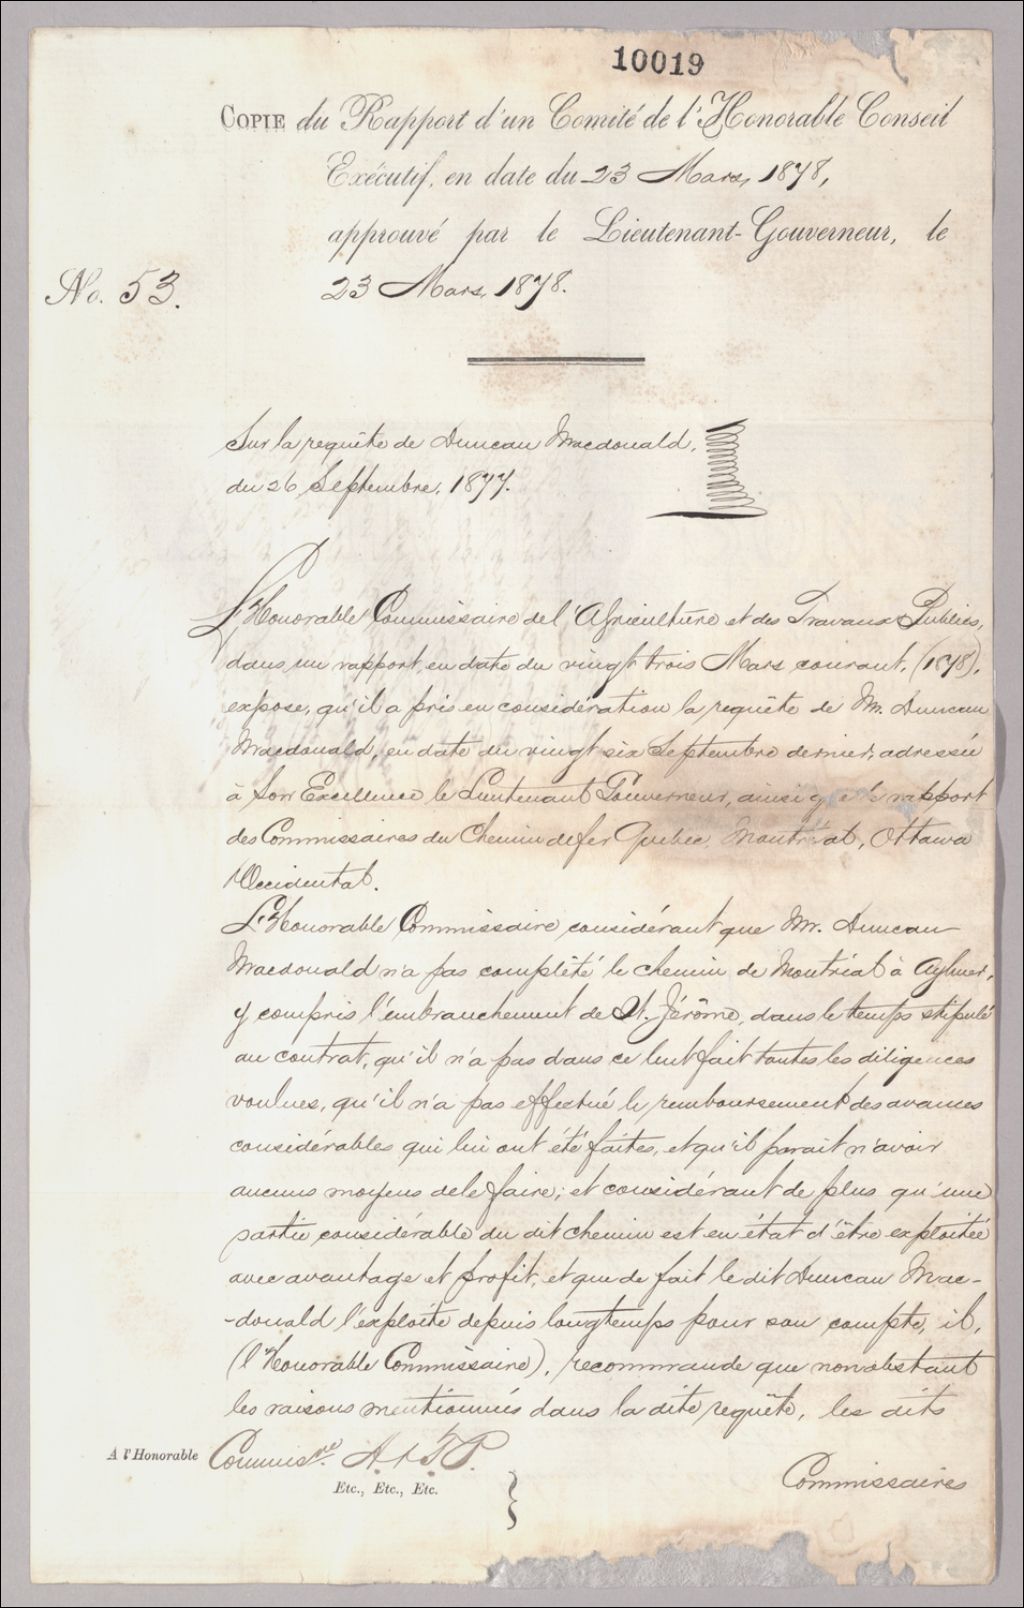 10019
COPIE du Rapport d'un Comité de l'Honorable Conseil
Exécutif, en date du 23 Mars, 1878,
approuvé par le Lieutenant-Gouverneur, le
No. 53. 23 Mars, 1878.
Sur la requête de Duncan Macdonald,
du 26 Septembre, 1877.
L'Honorable Commissaire de l'Agriculture et des Travaux Publics,
dans un rapport, en date du vingt trois Mars courant, (1878),
expose, qu'il a pris en considération la requête de M. Duncan
Macdonald, en date du vingt six Septembre dernier, adressée
à Son Excellence le Lieutenant Gouverneur, ainsi que le rapport
des Commissaires du Chemin de fer Quebec, Montréal, Ottawa
Occidental.
L'Honorable Commissaire considérant que Mr. Duncan
Macdonald n'a pas complété le chemin de Montréal à Aylmer,
y compris l'embranchement de St. Jérôme, dans le temps stipulé
au contrat, qu'il n'a pas dans ce but fait toutes les diligences
voulues, qu'il n'a pas effectué le remboursement des avances
considérables qui lui ont été faites, et qu'il parait n'avoir
aucuns moyens de le faire; et considérant de plus qu'une
partie considérable du dit chemin est en état d'être exploitée
avec avantage et profit, et que de fait le dit Duncan Mac-
-donald l'exploite depuis longtemps pour son compte, il,
(l'Honorable Commissaire), recommande que nonobstant
les raisons mentionnées dans la dite requête, les dits
A l'Honorable Commissre A. & T. P.
Etc., Etc., Etc.
Commissaires